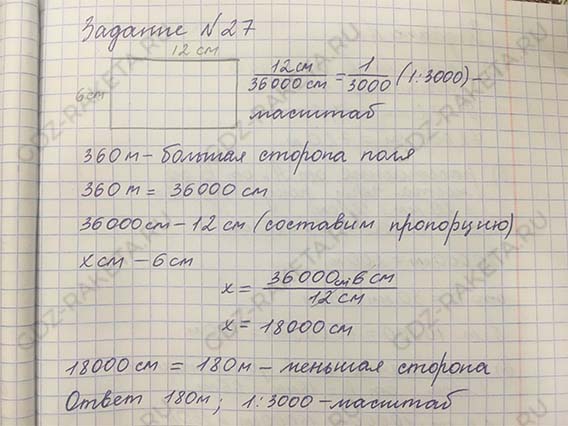 Задание №27
12 см
6см
12см / 36000см = 1/3000 (1:3000) –
масштаб
360м – большая сторона поля
360м = 36000 см
36000см – 12 см (составим пропорцию)
х см – 6см
х = 36000см·6см / 12 см
х = 18000см
18000см = 180м – меньшая сторона
Ответ 180м; 1:3000 – масштаб
GDZ-RAKETA.RU